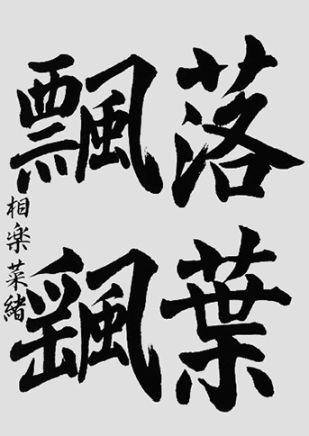 落葉
飄颻
相楽菜緒